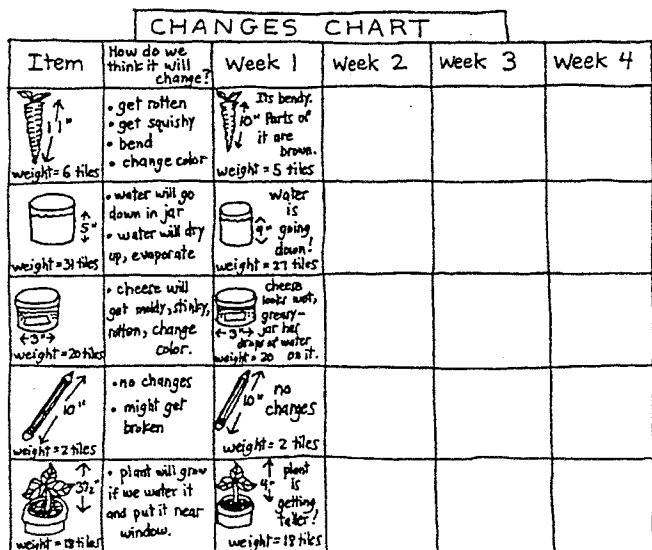 CHANGES CHART
Item
How do we
think it will
change?
Week 1
Week 2
Week 3
Week 4
11"
weight = 6 tiles
• get rotten
• get squishy
• bend
• change color
10"
Its bendy.
Parts of
it are
brown.
weight = 5 tiles
5"
weight = 31 tiles
• water will go
down in jar
• water will dry
up, evaporate
4"
water
is
going
down!
weight = 27 tiles
←3"→
weight = 20 tiles
• cheese will
get moldy, stinky,
rotton, change
color.
cheese
looks wet,
greasy-
jar has
drops of water
on it.
←3"→
weight = 20
10"
weight = 2 tiles
• no changes
• might get
broken
10"
no
changes
weight = 2 tiles
3½"
weight = 18 tiles
• plant will grow
if we water it
and put it near
window.
4"
plant
is
getting
taller!
weight = 18 tiles